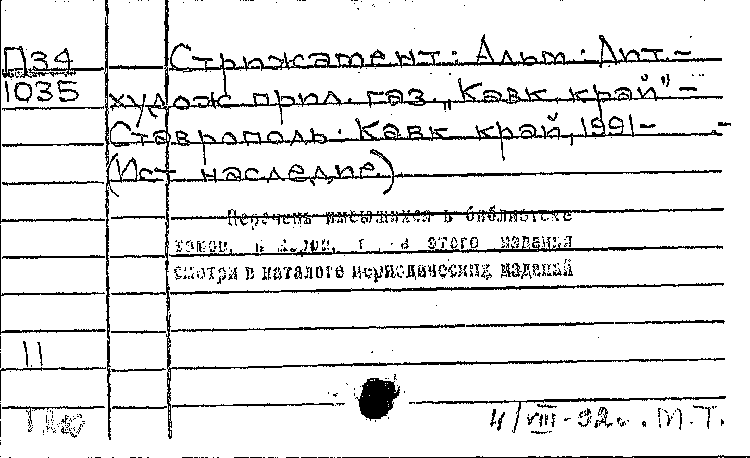 П34
1035
Стрижамент: Альм: Лит.-
худож прил. газ. "Кавк. край" -
Ставрополь: Кавк край, 1991- .-
(Ист наследие)
Перечень имеющихся в библиотеке
этого издания
смотри в каталоге периодических изданий
11
4/VIII-92г. М.Т.